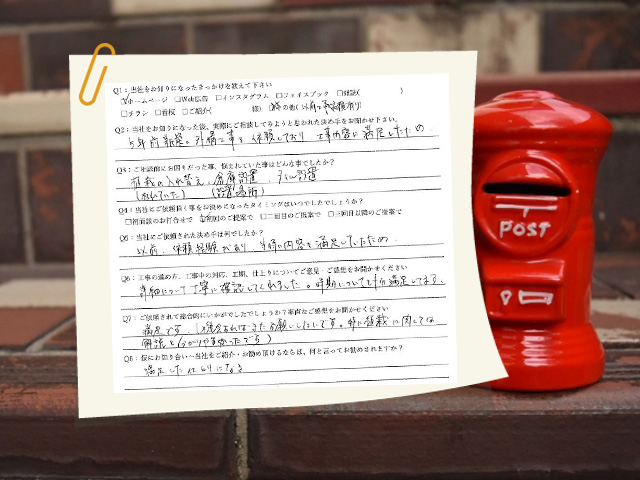 Q1：当社をお知りになったきっかけを教えて下さい
☑ホームページ □Web広告 □インスタグラム □フェイスブック □雑誌( )
□チラシ □看板 □ご紹介( 様) その他(以前
Q2：当社をお知りになった後、実際にご相談してみようと思われた決め手をお聞かせ下さい。
5年前新築。外構工事を依頼しており、工事内容に満足したため
Q3：ご相談前にお困りだった事、悩まれていた事はどんな事でしたか？
植栽の入れ替え、倉庫設置、
(設置場所)
Q4：当社にご依頼頂く事をお決めになったタイミングはいつでしたでしょうか？
□初面談のお打合せで □初回のご提案で □二回目のご提案で □三回目以降のご提案で
Q5：当社にご依頼された決め手は何でしたか？
以前、依頼経験があり、内容も満足していたため
Q6：工事の進め方、工事中の対応、工期、仕上りについてご意見・ご感想をお聞かせください
詳細について丁寧に確認してくれました。時期についても十分満足してます。
Q7：ご依頼されて総合的にいかがでしたでしょうか？率直なご感想をお聞かせください
満足です。機会あればまたお願いしたいです。特に植栽に関しては
解説も分かりやすかったです
Q8：仮にお知り合いへ当社をご紹介・お勧め頂けるならば、何と言ってお勧めされますか？
満足した仕上りになる
POST